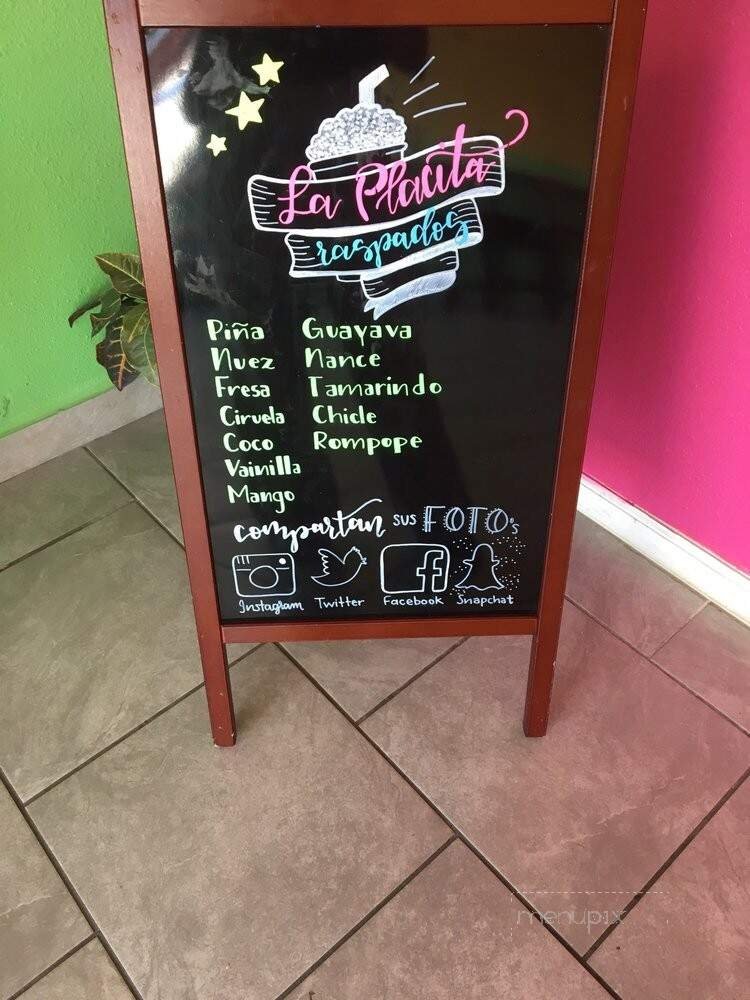 La Placita
raspados
Piña Guayava
Nuez Nance
Fresa Tamarindo
Ciruela Chicle
Coco Rompope
Vainilla
Mango
compartan sus FOTO's
Instagram Twitter Facebook Snapchat
menupix